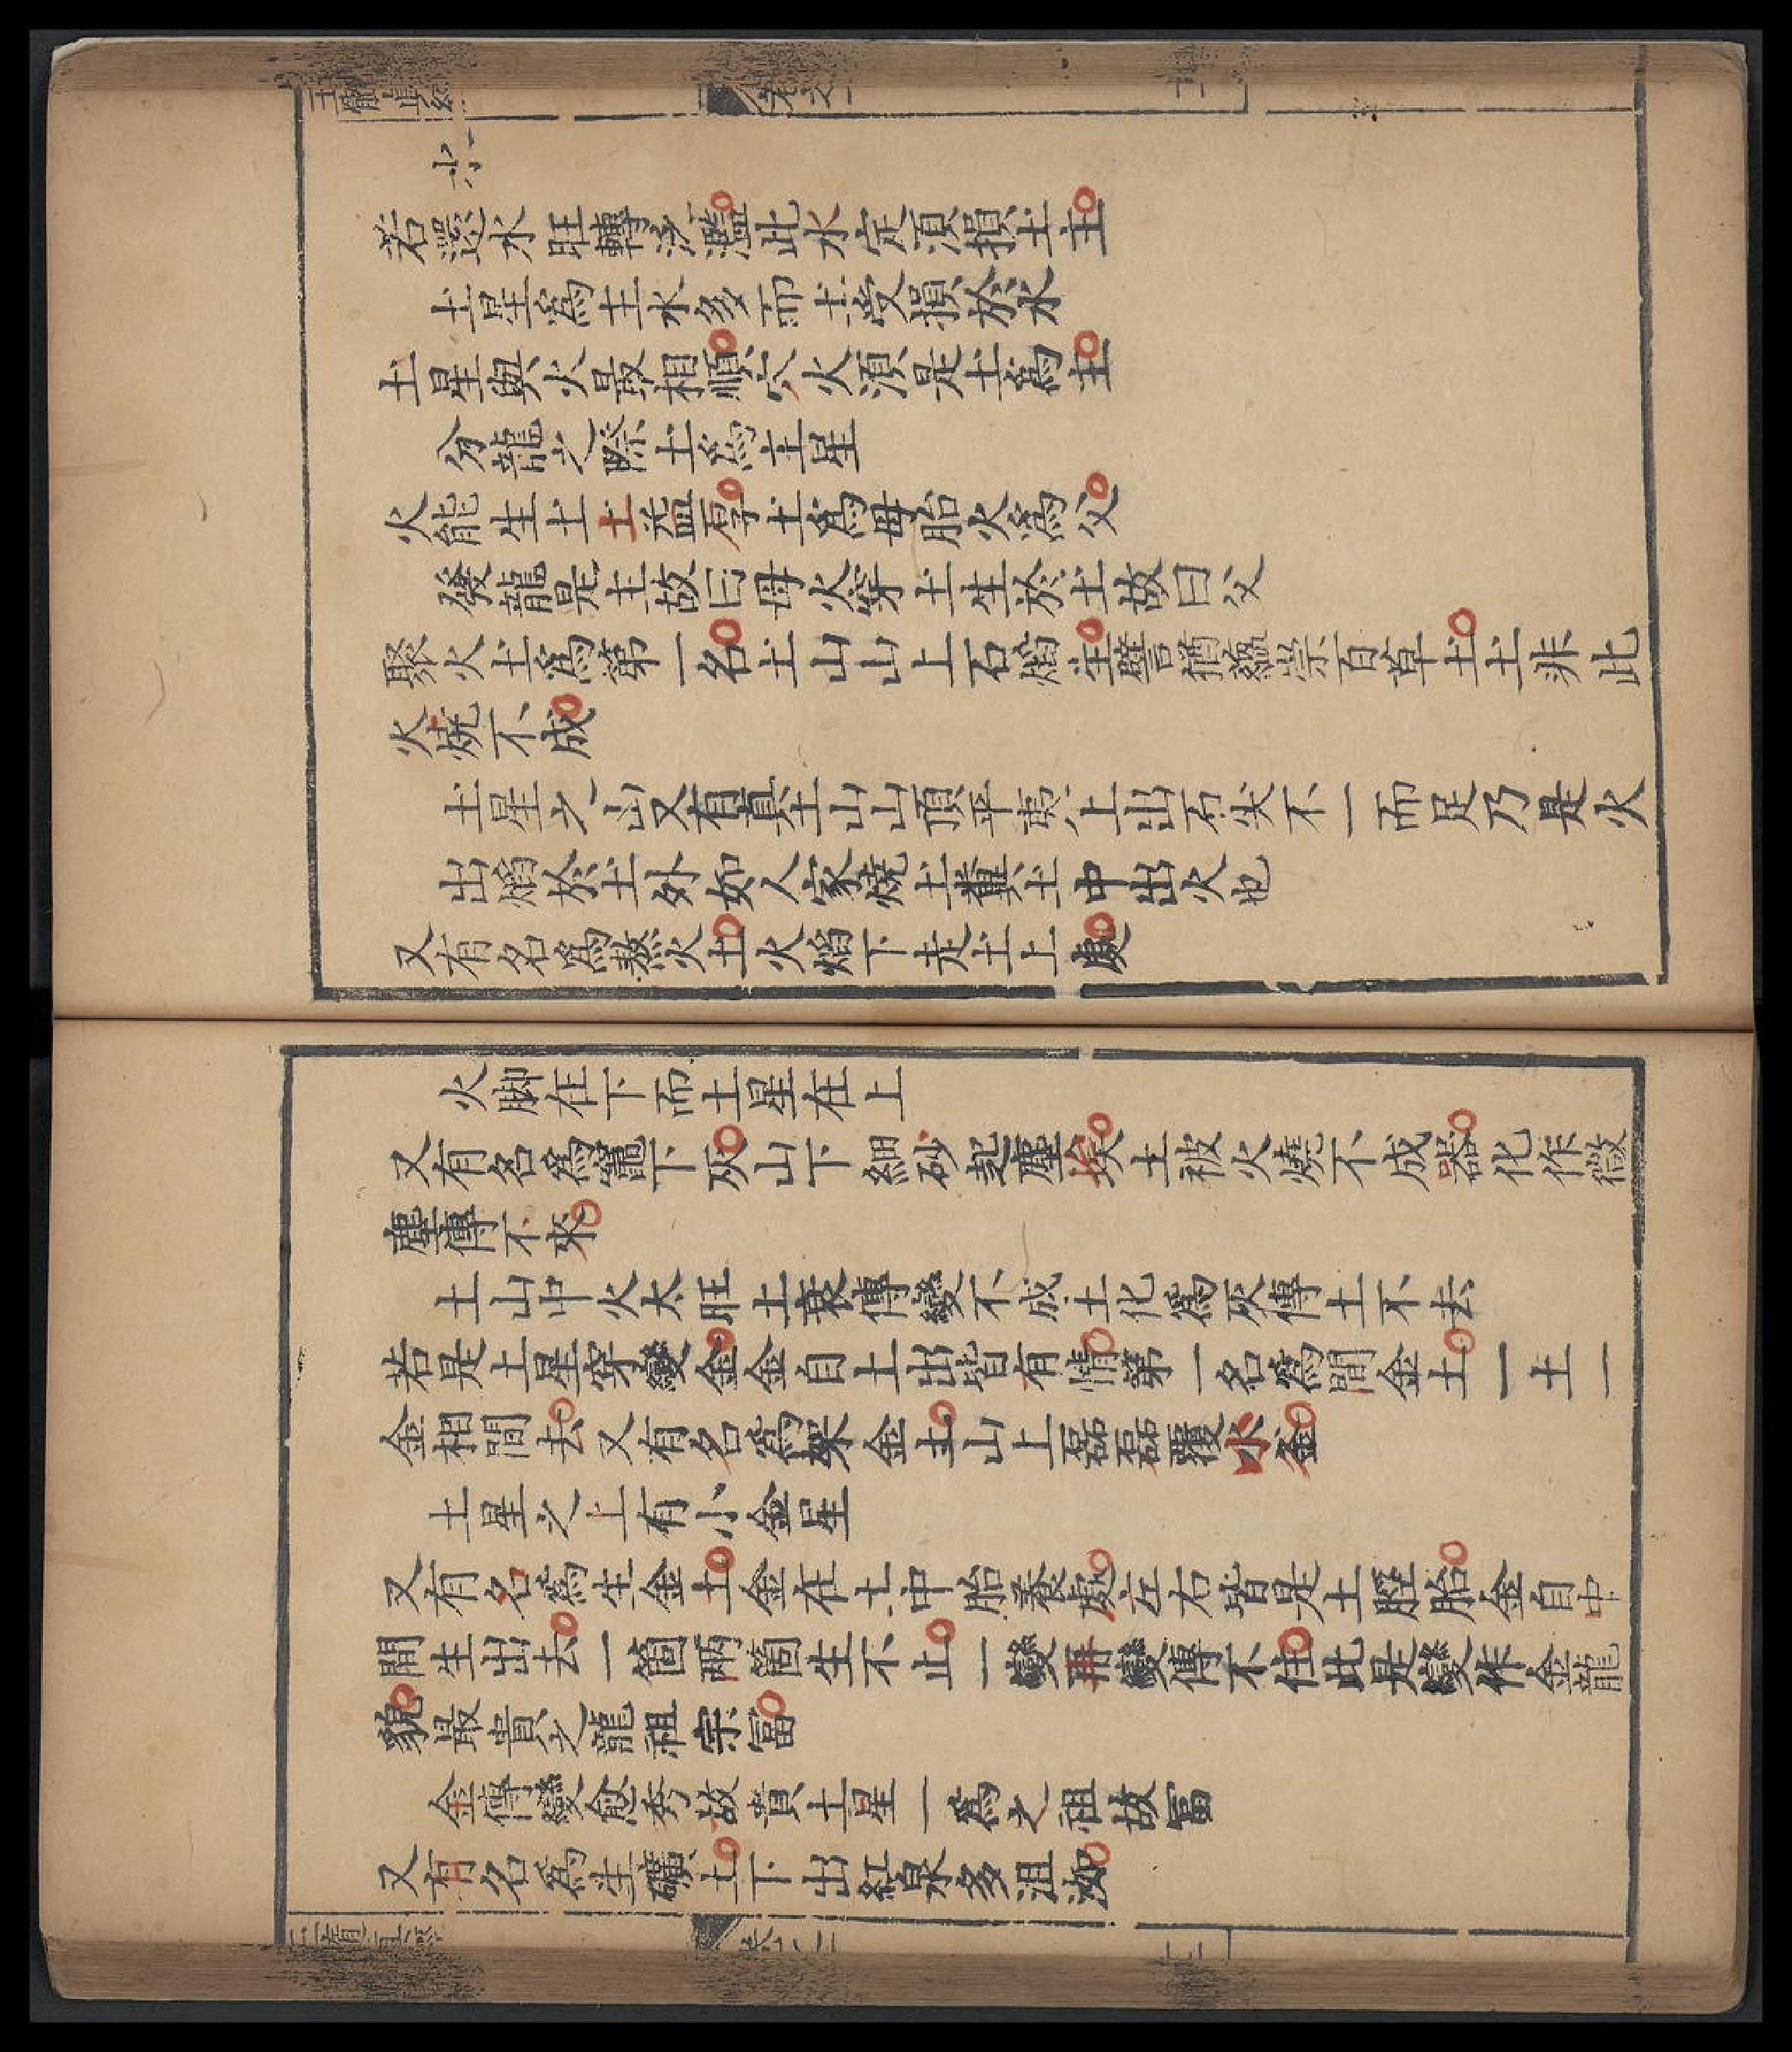 水
若還水旺轉汎濫此水定須損土主
土星爲主水多而土受損於水
土星與火最相順穴火須是土爲主
分龍之際土爲主星
火能生土土益厚土爲母胎火爲父
發龍是土故曰母火穿土生於土故曰父
聚火土爲第一名土山山上石焰生譬猶緼崇百草土土非此
火燒不成
土星之山又有真土山山頂平夷上出石尖不一而足乃是火
出焰於土外如人家燒土糞土中出火也
又有名爲熬火土火焰下走土上處
火脚在下而土星在上
又有名爲竈下灰山下細砂起塵埃土被火燒不成器化作微
塵傳不來
土山中火太旺土衰傳變不成土化爲灰傳土不去
若是土星穿變金金自土出皆有情第一名爲間金土一土一
金相間去又有名爲搩金土山上磊磊覆小金
土星之上有小金星
又有名爲生金土金在土中胎養處左右皆是土脛胎金自中
間生出去一箇兩箇生不止一變再變傳不住此是變作金龍
貌最貴之龍祖宗富
金傳變愈秀故貴土星一爲之祖故富
又有名爲生礦土下出紅泉多沮洳
卷之二